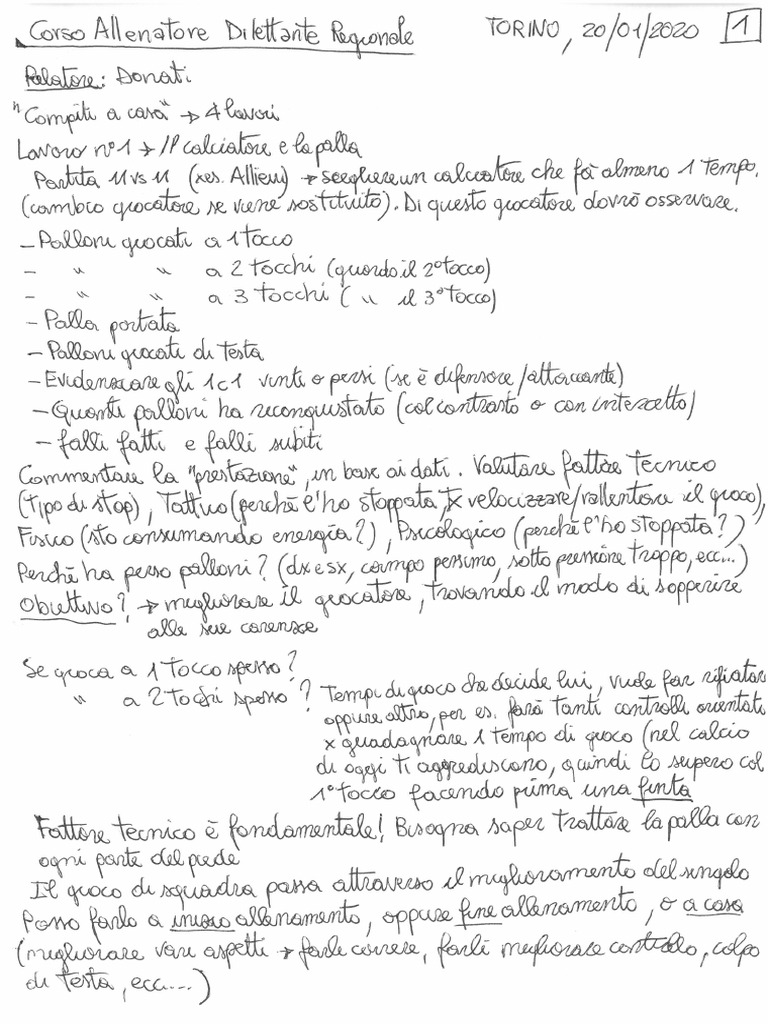 Corso Allenatore Dilettante Regionale TORINO, 20/01/2020 1
Relatore: Donati
"Compiti a casa" → 4 lavori
Lavoro n°1 → Il calciatore e la palla
Partita 11 vs 11 (es. Allievi) → scegliere un calciatore che fà almeno 1 tempo.
(cambio giocatore se viene sostituito). Di questo giocatore dovrò osservare.
- Palloni giocati a 1 tocco
- " " a 2 tocchi (guardo il 2° tocco)
- " " a 3 tocchi ( " il 3° tocco)
- Palla portata
- Palloni giocati di testa
- Evidenziare gli 1c1 vinti o persi (se è difensore/attaccante)
- Quanti palloni ha riconquistato (col contrasto o con intercetto)
- falli fatti e falli subiti
Commentare la "prestazione", in base ai dati. Valutare fattore Tecnico
(Tipo di stop), Tattico (perchè l'ho stoppata, x velocizzare/rallentare il gioco),
Fisico (sto consumando energia?), Psicologico (perchè l'ho stoppata?)
Perchè ha perso palloni? (dx e sx, campo pessimo, sotto pressione troppo, ecc...)
Obiettivo? → migliorare il giocatore, trovando il modo di sopperire
alle sue carenze
Se gioca a 1 tocco spesso?
" a 2 tocchi spesso? Tempi di gioco che decide lui, vuole far rifiatare
oppure altro, per es. farà tanti controlli orientati
x guadagnare 1 tempo di gioco (nel calcio
di oggi ti aggrediscono, quindi lo supero col
1° tocco facendo prima una finta
Fattore tecnico è fondamentale! Bisogna saper trattare la palla con
ogni parte del piede
Il gioco di squadra passa attraverso il miglioramento del singolo
Posso farlo a inizio allenamento, oppure fine allenamento, o a casa
(migliorare vari aspetti → farle correre, farli migliorare controllo, colpo
di testa, ecc....)